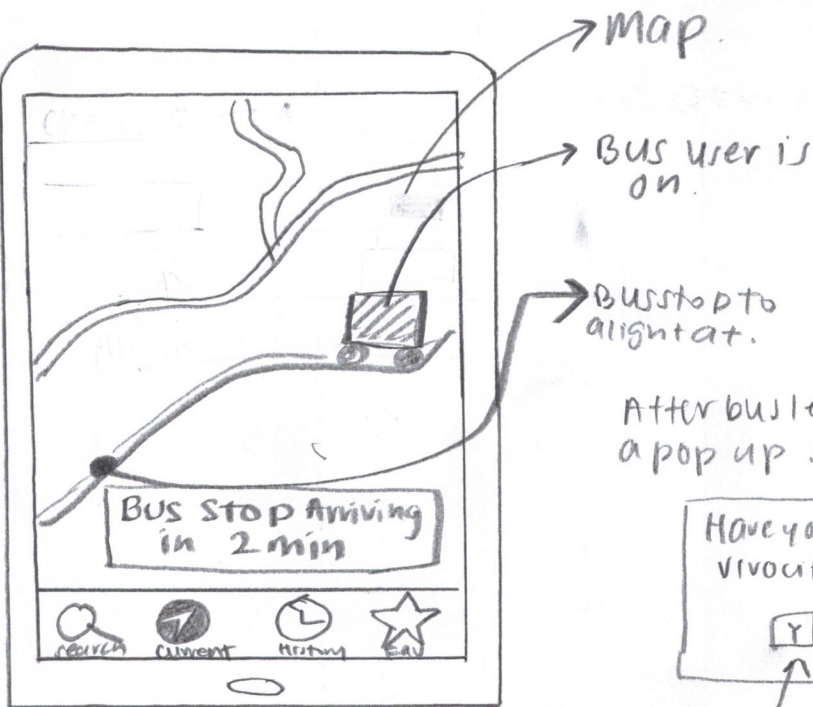 Map.
Bus user is
on.
Busstop to
alight at.
After bus
a pop up.
Bus Stop Arriving
in 2 min
Have
Y
search current History Fav